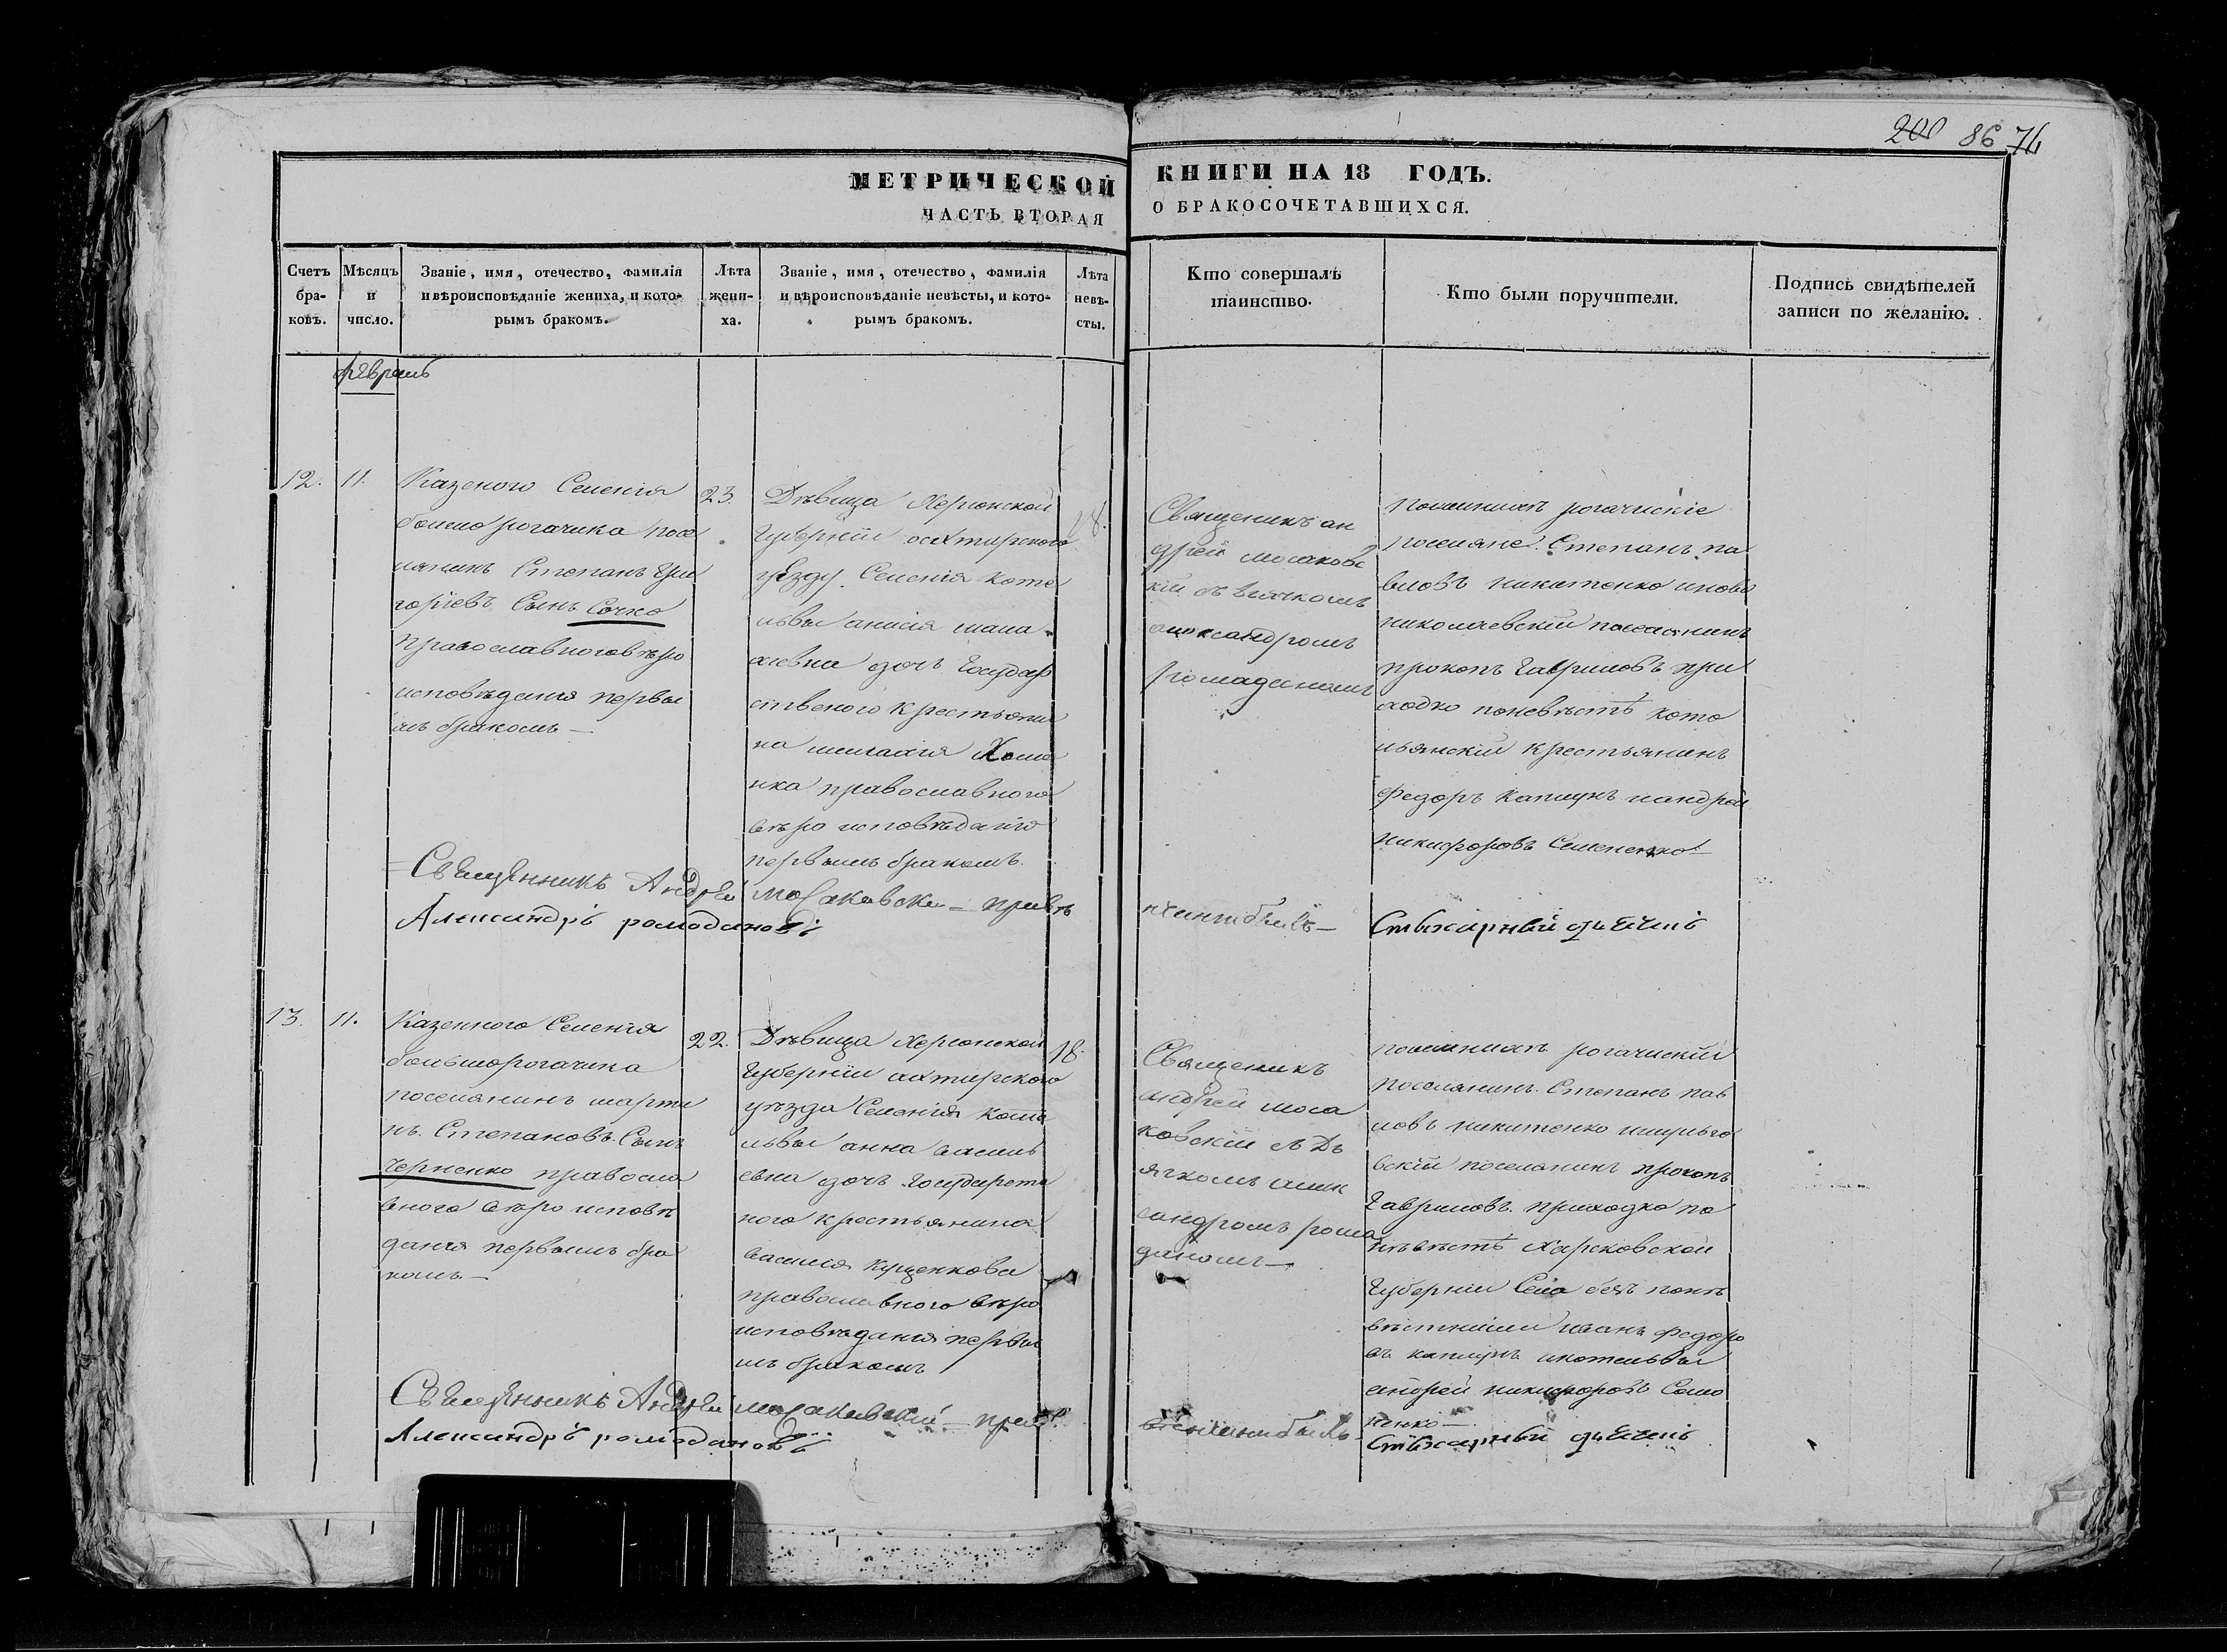 200 86 74
МЕТРИЧЕСКОЙ КНИГИ НА 18 ГОДЪ.
ЧАСТЬ ВТОРАЯ О БРАКОСОЧЕТАВШИХСЯ.
Счетъ бра-ковъ.
Мѣсяцъ и число.
Званіе, имя, отечество, фамилія
и вѣроисповѣданіе жениха, и кото-
рымъ бракомъ.
Лѣта
жени-
ха.
Званіе, имя, отечество, фамилія
и вѣроисповѣданіе невѣсты, и кото-
рымъ бракомъ.
Лѣта
невѣ-
сты.
Кто совершалъ
таинство.
Кто были поручители.
Подпись свидѣтелей
записи по желанію.
февраль
12.
11.
Казеного Селенія
болшо рогачика посе
лянинъ Степанъ Гри
горіевъ Сынъ Сочко
православноговѣро
исповѣданія первы
мъ бракомъ —
23.
Дѣвица Херсонской
Губерніи
уезду Селенія Коте
львы анисія
дочь Государ
ственого Крестьяни
на
нка православного
вѣро исповѣданія
первымъ бракомъ.
18.
Священикъ ан
дрей мосаковс
кій
александромъ
ромаданомъ
поженихѣ рогачискіе
поселяне Степанъ па
вловъ никитенко иново
николаевскій поселянинъ
прокопъ Гавриловъ при
ходко поневѣстѣ коте
львянскій крестьянинъ
федоръ капшукъ иандрей
никифоровъ Семененко
Священникъ Андрей мосаковски —
Александръ ромодановъ
Стихарный дьячекъ
13.
11.
Казенного Селенія
большорогачика
поселянинъ марти
нъ Степановъ Сынъ
Черненко правосла
вного вѣро исповѣ
данія первымъ бра
комъ —
22.
Дѣвица Херсонской
Губерніи ахтирского
уѣзда Селенія Коте
львы анна васильеBна
дочь Государстве
ного крестьянина
василія
православного вѣро
исповѣданія первы
мъ бракомъ
18.
Священикъ
андрей моса
ковскій съ Дь
ячкомъ алек
сандромъ рома
даномъ —
поженихѣ рогачискій
поселянинъ Степанъ пав
ловъ никитенко
вскій поселянинъ прокопъ
Гавриловъ приходко по
невѣстѣ Харковской
Губерніи Села
иванъ федоро
въ капшукъ икотельвы
андрей никифоровъ Семе
ненко —
Священникъ Андрей мосаковскій —
Александръ ромодановъ
Стихарный дьячекъ